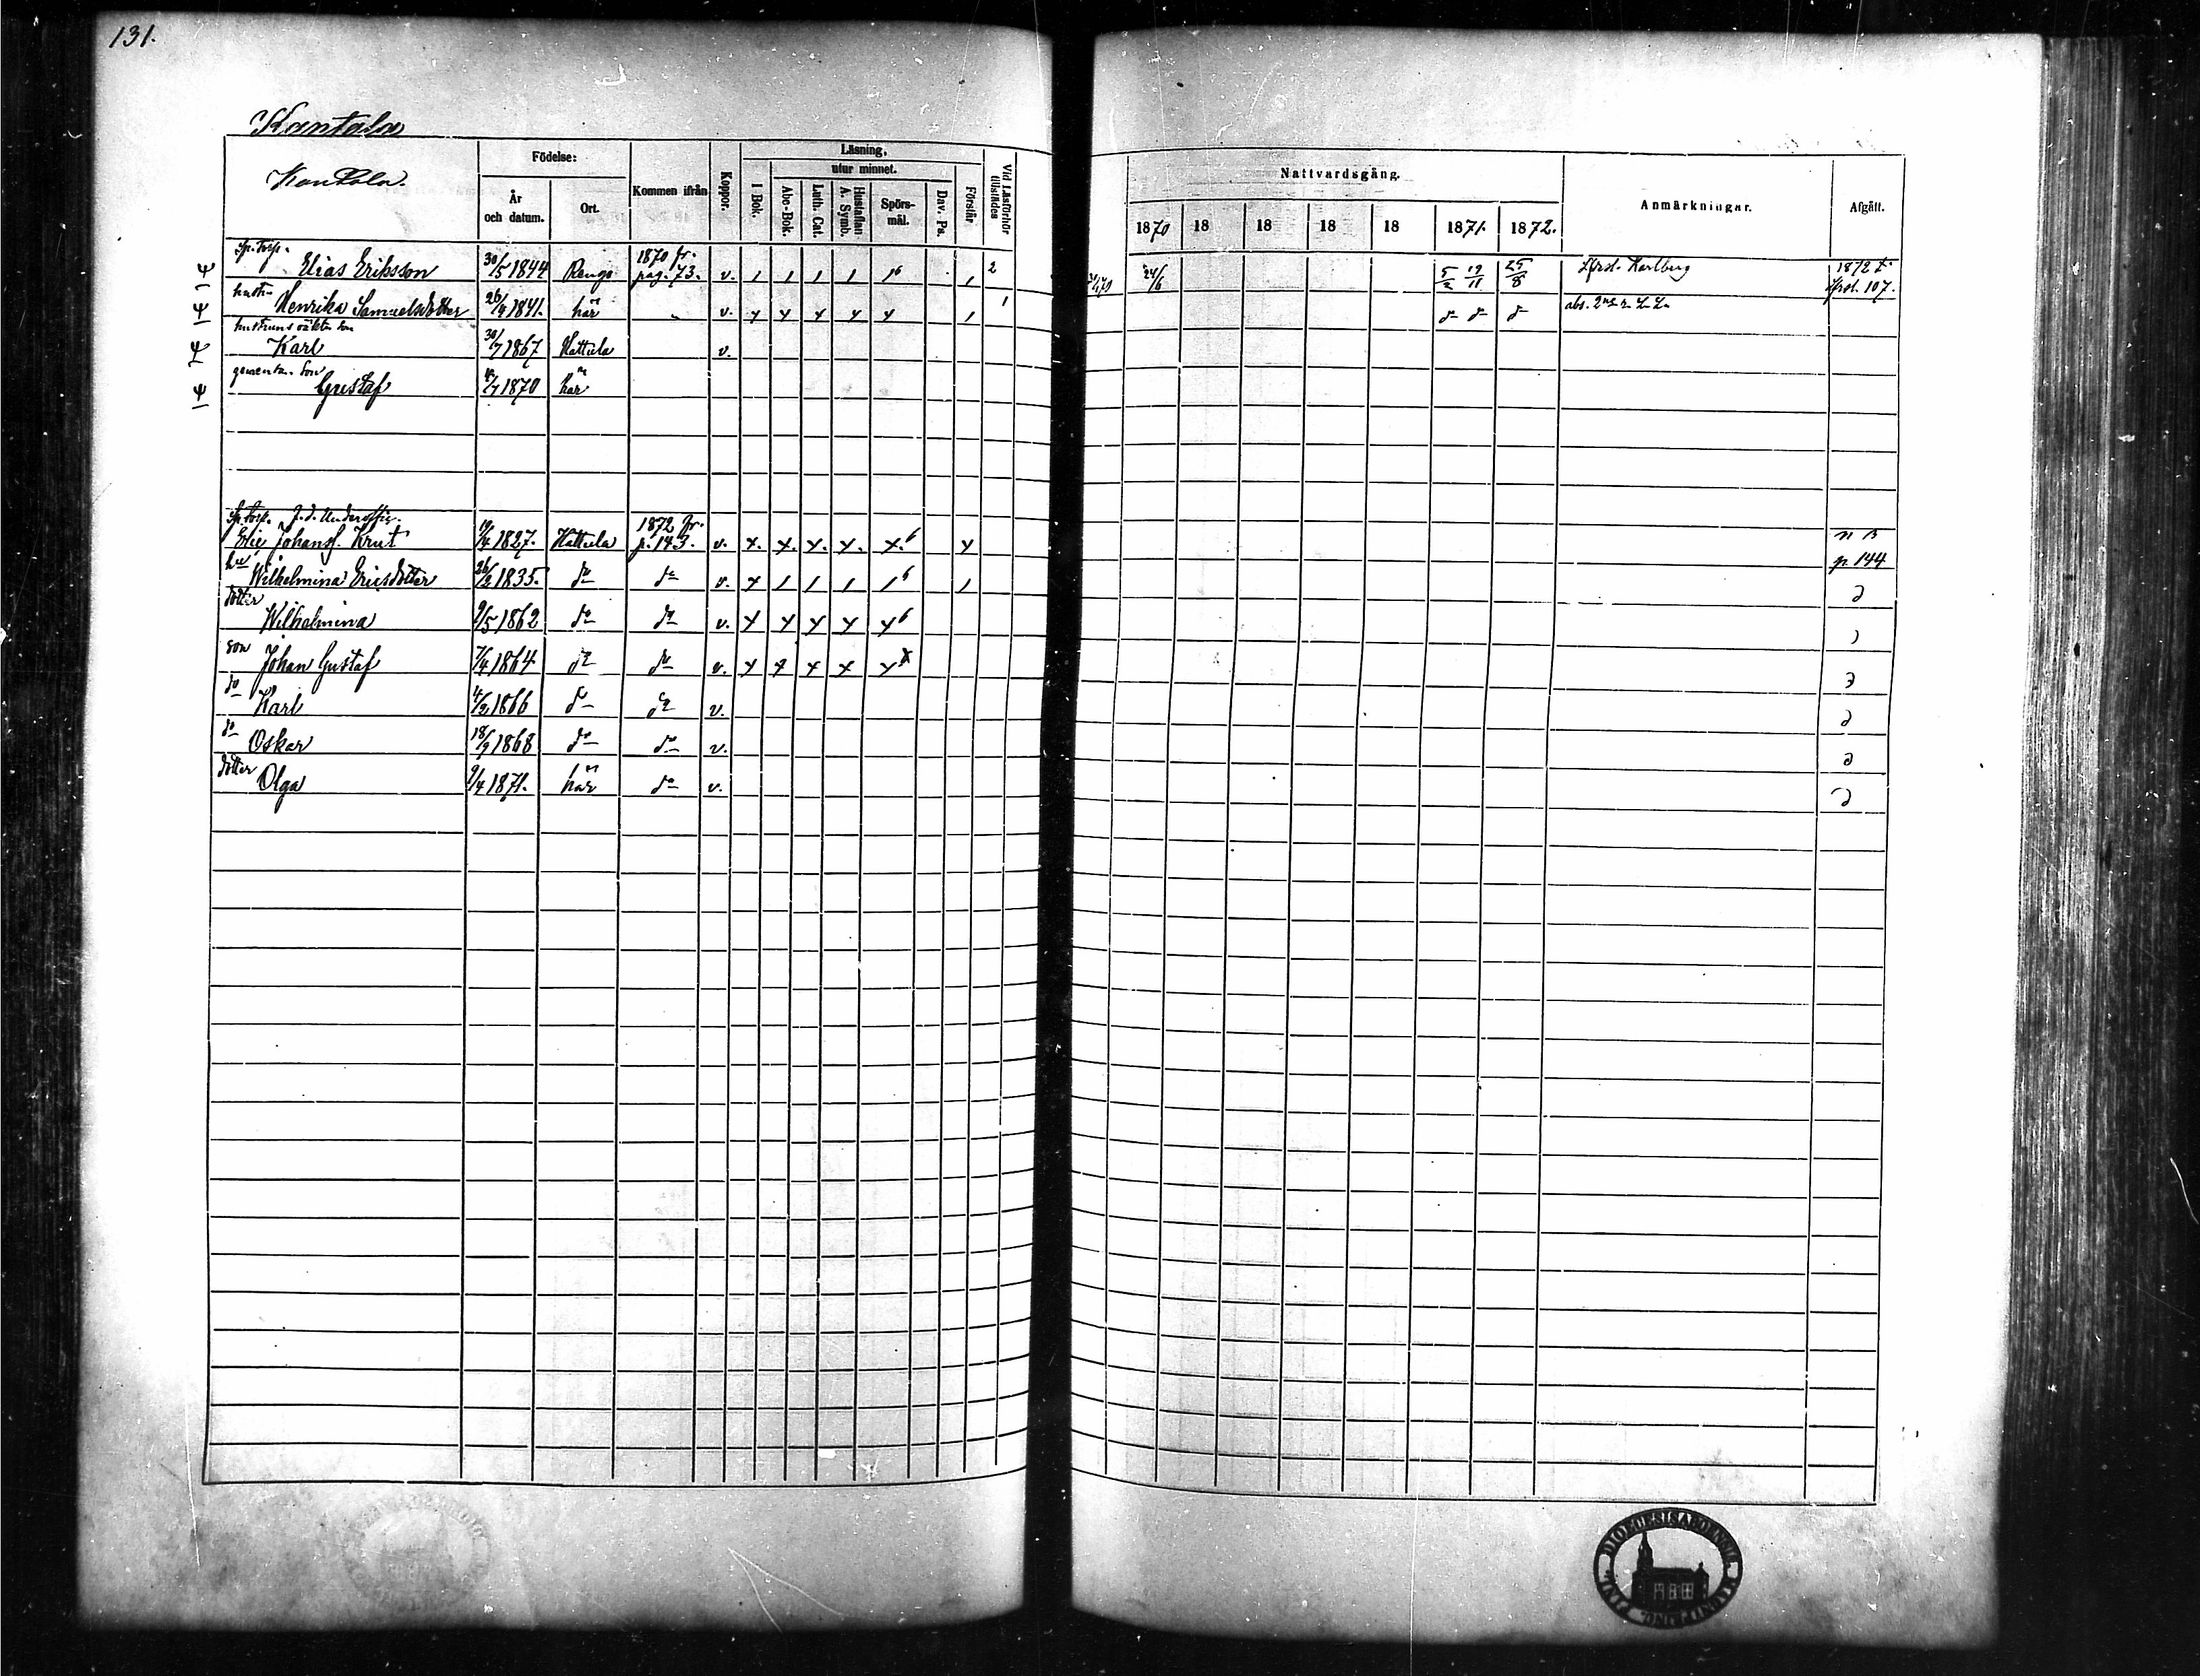 131.
Kantala
Kantala.
Födelse:
År och datum.
Ort.
Kommen ifrån
Koppor.
Läsning,
utur minnet.
I Bok.
Abc-Bok.
Luth. Cat.
Hustaflan A. Symb.
Spörs-mål.
Dav. Ps.
Förstår
Vid Läsförhör tillstädes
Nattvardsgång.
1870 18 18 18 18 1871. 1872.
Anmärkningar.
Afgått.
Sp. torp.
Elias Eriksson 30/5 1844 Rengo 1870 fr. pag. 73. v. 1 1 1 1 1 1 2 24/6 5/2 19/11 25/8 Karlberg 1872 107.
hustru
Henrika Samuelsdotter 26/9 1841. här v. 1 1
hustruns oäkta son
Karl 30/7 1867 Hattula v.
gemens. son
Gustaf 1870 här
Sp. torp. f. d. Underoffic.
Eric Johansf. Krut 19/4 1827. Hattula 1872 fr. p. 143. v. n B p. 144
hu
Wilhelmina Ericsdotter 26/2 1835. do do v. 1 1 1 1 1
dotter
Wilhelmina 9/5 1862 do do v.
son
Johan Gustaf 7/4 1864 do do v.
do
Karl 4/2 1866 do do v.
do
Oskar 18/9 1868 do do v.
dotter
Olga 9/4 1871. här do v.
DIOECESIS ABOENSIS